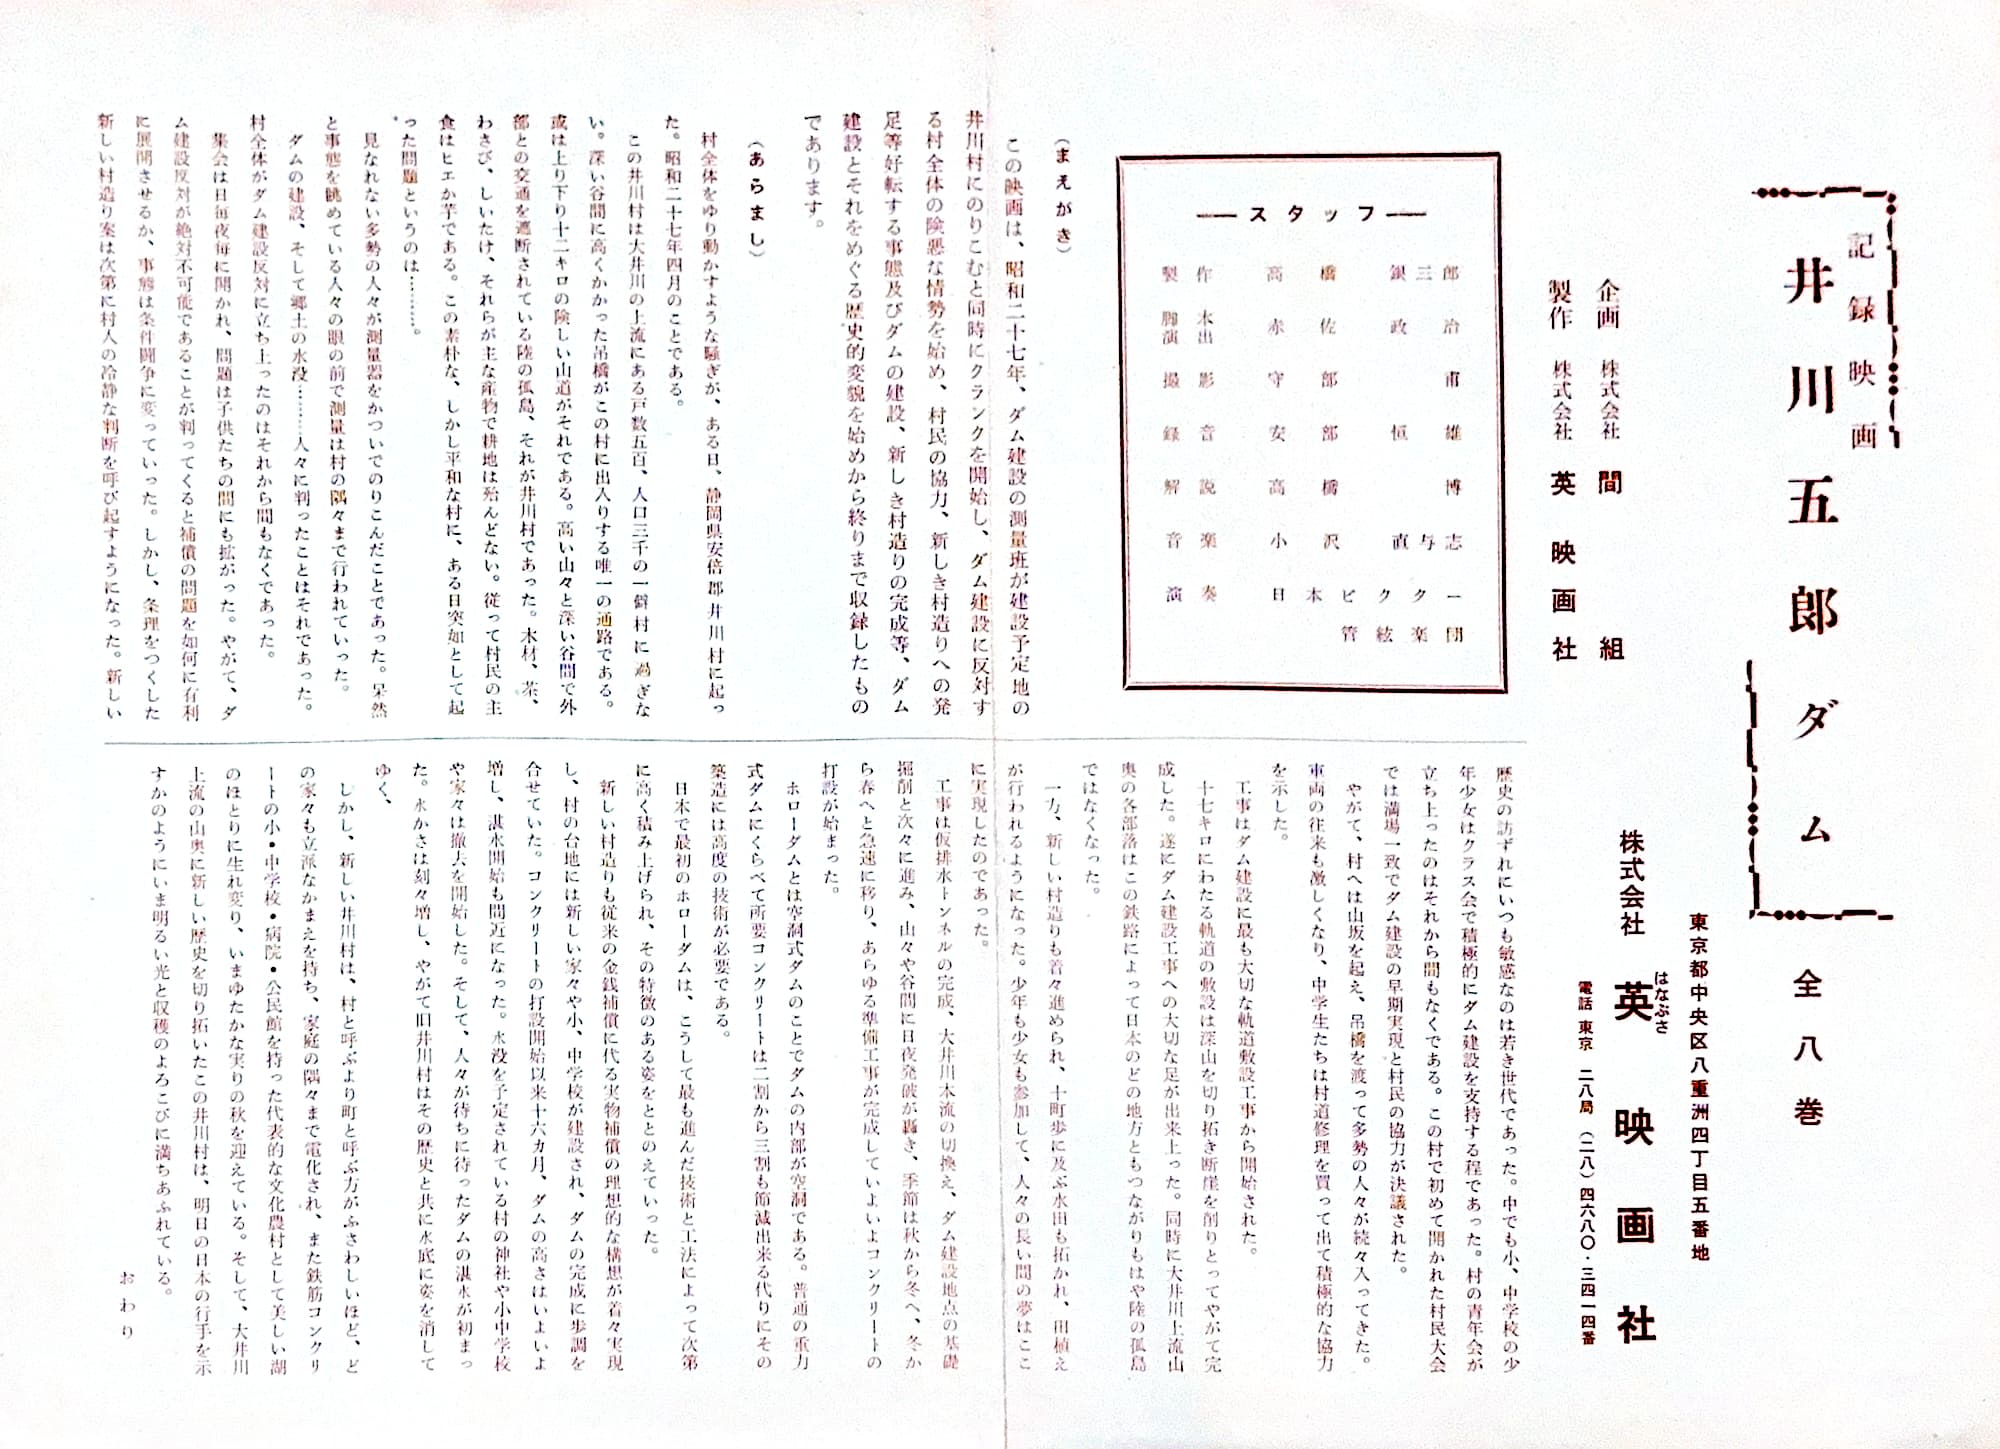 記録映画
井川五郎ダム
全八巻
東京都中央区八重洲四丁目五番地
株式会社 英映画社
はなぶさ
電話 東京 二八局 (二八) 四六八〇・三四一四番
企画 株式会社 間組
製作 株式会社 英映画社
―スタッフ―
製作 高橋銀三郎
脚本 演出 赤佐政治
撮影 守部甫
録音 安部恒雄
解説 高橋博
音楽 小沢直与志
演奏 日本ビクター
管絃楽団
(まえがき)
この映画は、昭和二十七年、ダム建設の測量班が建設予定地の
井川村にのりこむと同時にクランクを開始し、ダム建設に反対す
る村全体の険悪な情勢を始め、村民の協力、新しき村造りへの発
足等好転する事態及びダムの建設、新しき村造りの完成等、ダム
建設とそれをめぐる歴史的変貌を始めから終りまで収録したもの
であります。
(あらまし)
村全体をゆり動かすような騒ぎが、ある日、静岡県安倍郡井川村に起っ
た。昭和二十七年四月のことである。
この井川村は大井川の上流にある戸数五百、人口三千の一僻村に過ぎな
い。深い谷間に高くかかった吊橋がこの村に出入りする唯一の通路である。
或は上り下り十二キロの険しい山道がそれである。高い山々と深い谷間で外
部との交通を遮断されている陸の孤島、それが井川村であった。木材、茶、
わさび、しいたけ、それらが主な産物で耕地は殆んどない。従って村民の主
食はヒエか芋である。この素朴な、しかし平和な村に、ある日突如として起
った問題というのは………。
見なれない多勢の人々が測量器をかついでのりこんだことであった。呆然
と事態を眺めている人々の眼の前で測量は村の隅々まで行われていった。
ダムの建設、そして郷土の水没………人々に判ったことはそれであった。
村全体がダム建設反対に立ち上ったのはそれから間もなくであった。
集会は日毎夜毎に開かれ、問題は子供たちの間にも拡がった。やがて、ダ
ム建設反対が絶対不可能であることが判ってくると補償の問題を如何に有利
に展開させるか、事態は条件闘争に変っていった。しかし、条理をつくした
新しい村造り案は次第に村人の冷静な判断を呼び起すようになった。新しい
歴史の訪ずれにいつも敏感なのは若き世代であった。中でも小、中学校の少
年少女はクラス会で積極的にダム建設を支持する程であった。村の青年会が
立ち上ったのはそれから間もなくである。この村で初めて開かれた村民大会
では満場一致でダム建設の早期実現と村民の協力が決議された。
やがて、村へは山坂を起え、吊橋を渡って多勢の人々が続々入ってきた。
車両の往来も激しくなり、中学生たちは村道修理を買って出て積極的な協力
を示した。
工事はダム建設に最も大切な軌道敷設工事から開始された。
十七キロにわたる軌道の敷設は深山を切り拓き断崖を削りとってやがて完
成した。遂にダム建設工事への大切な足が出来上った。同時に大井川上流山
奥の各部落はこの鉄路によって日本のどの地方ともつながりもはや陸の孤島
ではなくなった。
一方、新しい村造りも着々進められ、十町歩に及ぶ水田も拓かれ、田植え
が行われるようになった。少年も少女も参加して、人々の長い間の夢はここ
に実現したのであった。
工事は仮排水トンネルの完成、大井川本流の切換え、ダム建設地点の基礎
掘削と次々に進み、山々や谷間に日夜発破が轟き、季節は秋から冬へ、冬か
ら春へと急速に移り、あらゆる準備工事が完成していよいよコンクリートの
打設が始まった。
ホローダムとは空洞式ダムのことでダムの内部が空洞である。普通の重力
式ダムにくらべて所要コンクリートは二割から三割も節減出来る代りにその
築造には高度の技術が必要である。
日本で最初のホローダムは、こうして最も進んだ技術と工法によって次第
に高く積み上げられ、その特徴のある姿をととのえていった。
新しい村造りも従来の金銭補償に代る実物補償の理想的な構想が着々実現
し、村の台地には新しい家々や小、中学校が建設され、ダムの完成に歩調を
合せていた。コンクリートの打設開始以来十六カ月、ダムの高さはいよいよ
増し、湛水開始も間近になった。水没を予定されている村の神社や小中学校
や家々は撤去を開始した。そして、人々が待ちに待ったダムの湛水が初まっ
た。水かさは刻々増し、やがて旧井川村はその歴史と共に水底に姿を消して
ゆく、
しかし、新しい井川村は、村と呼ぶより町と呼ぶ方がふさわしいほど、ど
の家々も立派なかまえを持ち、家庭の隅々まで電化され、また鉄筋コンクリ
ートの小・中学校・病院・公民館を持った代表的な文化農村として美しい湖
のほとりに生れ変り、いまゆたかな実りの秋を迎えている。そして、大井川
上流の山奥に新しい歴史を切り拓いたこの井川村は、明日の日本の行手を示
すかのようにいま明るい光と収穫のよろこびに満ちあふれている。
おわり